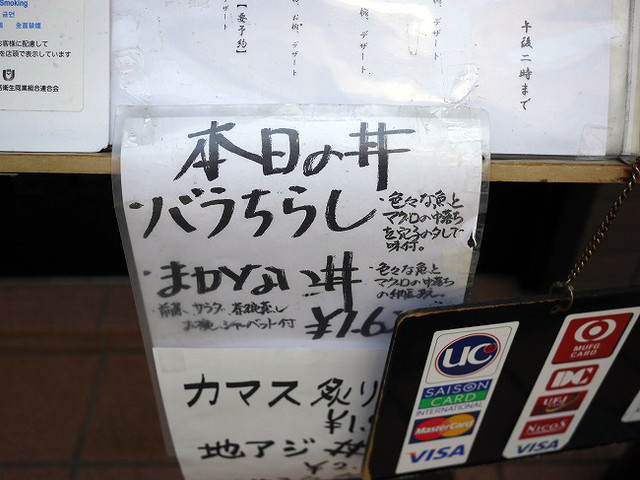 Smoking
금연
全面禁煙
お客様に配慮して
を店頭で表示しています
衛生同業組合連合会
【要予約】
お椀、デザート
椀、デザート
椀、デザート
午後二時まで
本日の丼
・バラちらし
・色々な魚と
マグロの中落ち
味付。
・まかない丼
・色々な魚と
マグロの中落ち
前菜、サラダ、茶碗蒸し
お椀、シャーベット付
¥1.6
カマス 炙り
¥1.
地アジ
¥2.
UC
SAISON
CARD
INTERNATIONAL
MasterCard
VISA
MUFG
CARD
DC
UFJ
NICOS
VISA